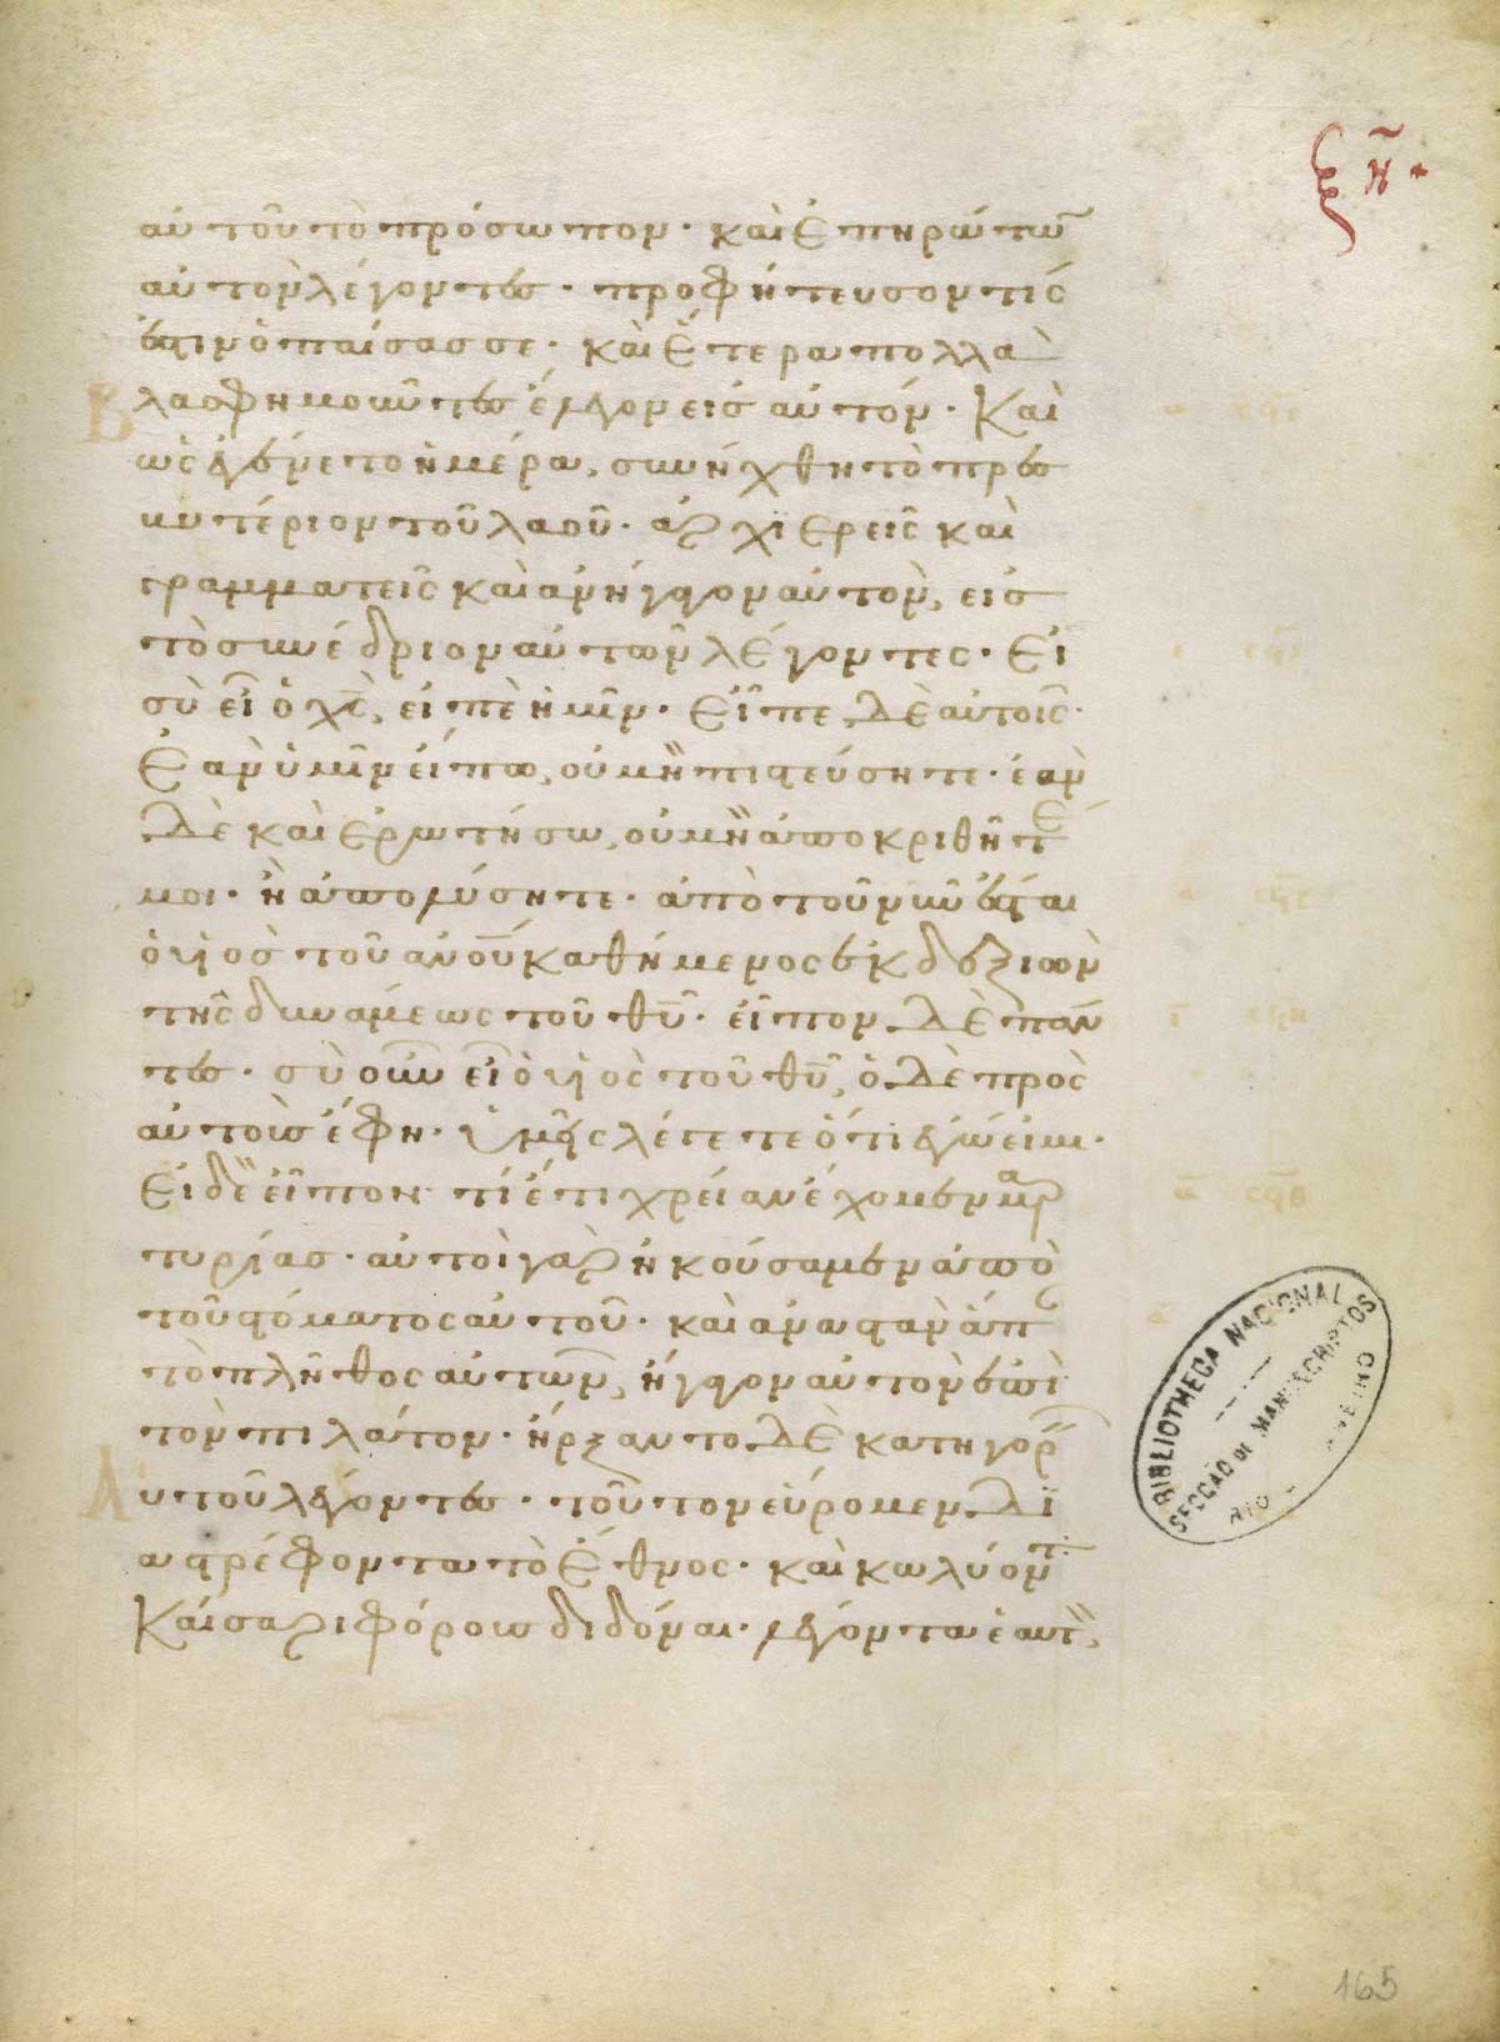 ξη
αὐτοῦ τὸ πρόσωπον· καὶ ἐπηρώτω̃
αὐτὸν λέγοντες· προφήτευσον τίς
ἐστιν ὁ παίσας σε· καὶ ἕτερα πολλὰ
Βλασφημοῦντες ἔλεγον εἰς αὐτόν· Καὶ
ὡς ἐγένετο ἡμέρα, συνήχθη τὸ πρεσ
βυτέριον τοῦ λαοῦ· ἀρχιερεῖς καὶ
γραμματεῖς καὶ ἀνήγαγον αὐτὸν, εἰς
τὸ συνέδριον αὐτῶν λέγοντες· Εἰ
σὺ εἶ ὁ χς̅, εἰπὲ ἡμῖν· Εἶπε δὲ αὐτοῖς·
Ἐὰν ὑμῖν εἴπω, οὐ μὴ πιστεύσητε· ἐὰν
δὲ καὶ ἐρωτήσω, οὐ μὴ ἀποκριθῆτέ
μοι· ἢ ἀπολύσητε· ἀπὸ τοῦ νῦν ἔσται
ὁ υἱὸς τοῦ ἀνου̅ καθήμενος ἐκ δεξιῶν
τῆς δυνάμεως τοῦ θυ̅· εἶπον δὲ πάν
τες· σὺ οὖν εἶ ὁ υἱὸς τοῦ θυ̅, ὁ δὲ πρὸς
αὐτοὺς ἔφη· ὑμεῖς λέγετε ὅτι ἐγώ εἰμι·
Εἰ δὲ εἶπον τί ἔτι χρείαν ἔχομεν μαρ
τυρίας· αὐτοὶ γὰρ ἠκούσαμεν ἀπὸ
τοῦ στόματος αὐτοῦ· καὶ ἀναστὰν ἅπ
τὸ πλῆθος αὐτῶν, ἤγαγον αὐτὸν ἐπὶ
τὸν πιλάτον· ἤρξαντο δὲ κατηγορ
Αυτοῦ λέγοντες· τοῦτον εὕρομεν δι
αστρέφοντα τὸ ἔθνος· καὶ κωλύοντ
Καίσαρι φόρους διδόναι· λέγοντα ἑαυτ,
BIBLIOTHECA NACIONAL
SECÇÃO DE MANUSCRIPTOS
RIO
165